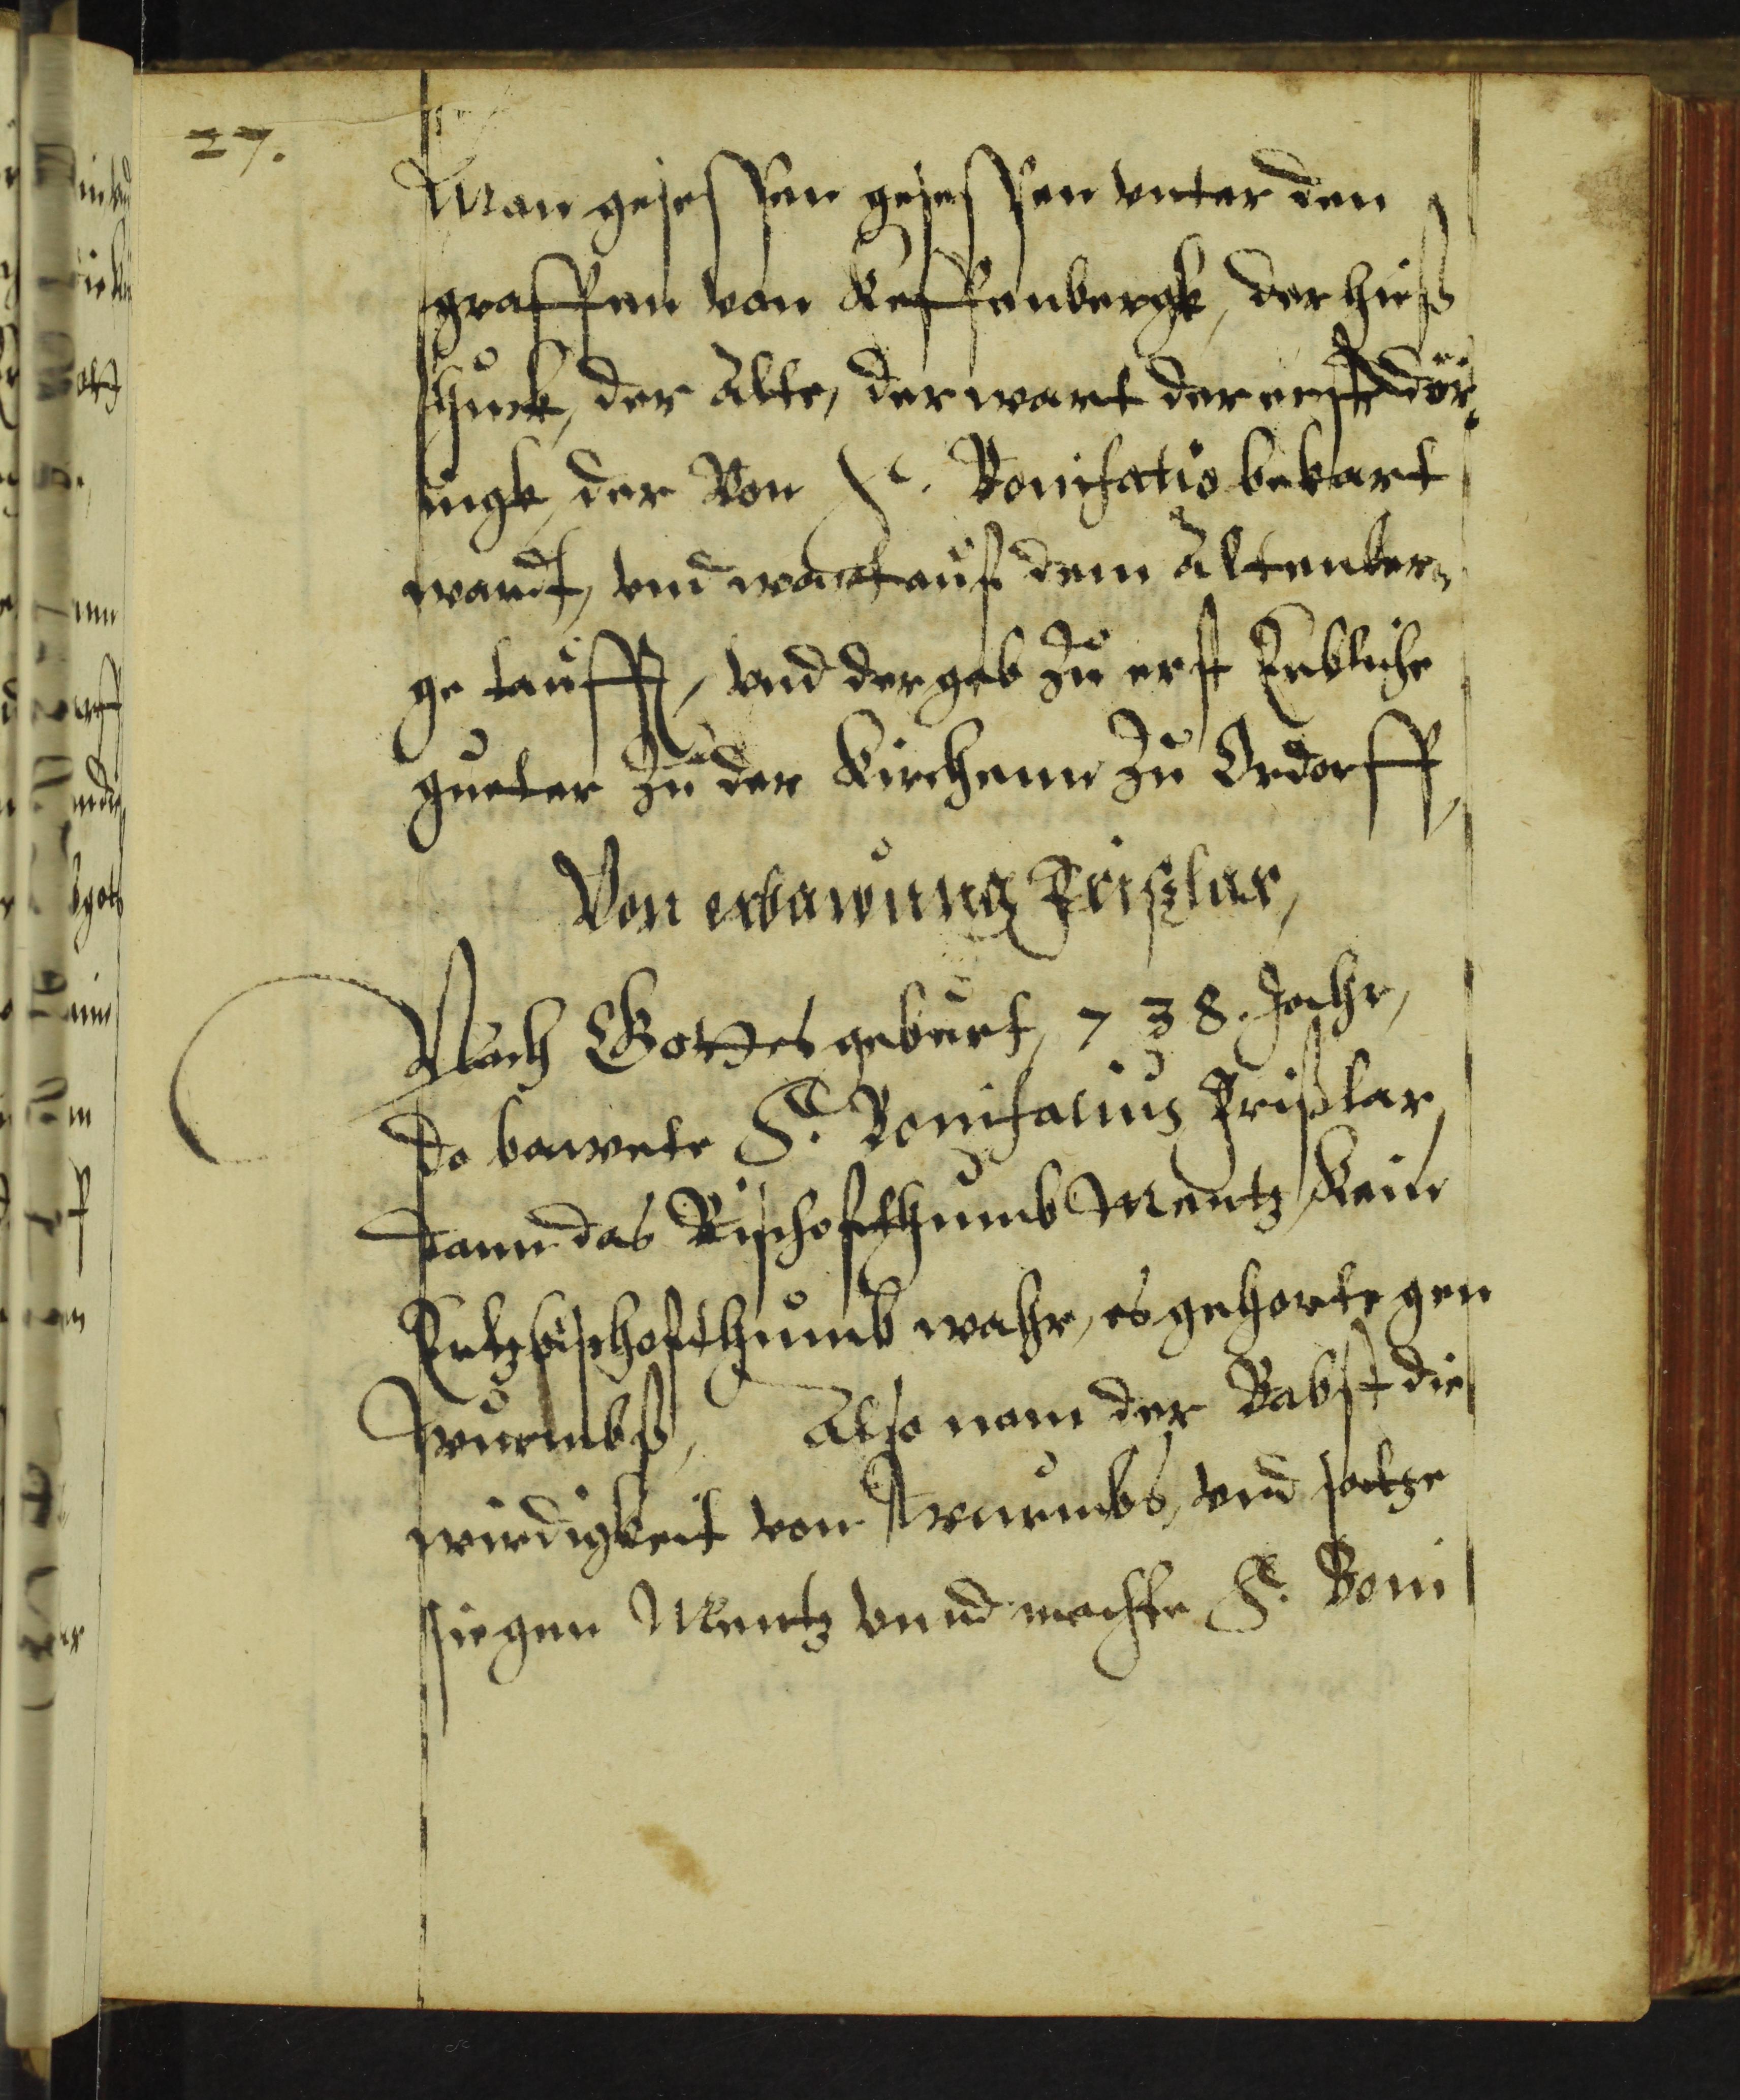 27.
Man gesessen gesessen vnter den
graffen von Keffenbergk, der hieß
Huck, der Alte, der wart der erste dör,
ingk, der Von S. Bonifatio bekart
wardt, vnd wart auf dem Altenber,
ge taufft, vnd der gab zu erst Erbliche
gueter zu der Kirchenn zu Ordorff,
Von erbawung Frißlar,
Nach Gottes geburt, 738. Jahr,
do bawete S. Bonifacius Frißlar,
dann das Bischofthumb Mentz Kein
Ertzbischofthumb wahr, es gehorte gen
Wurmbß, Also nam der Babst die
wirdigkeit von Wurmbs, vnd satze
sie gen Mentz vnnd machte S. Boni